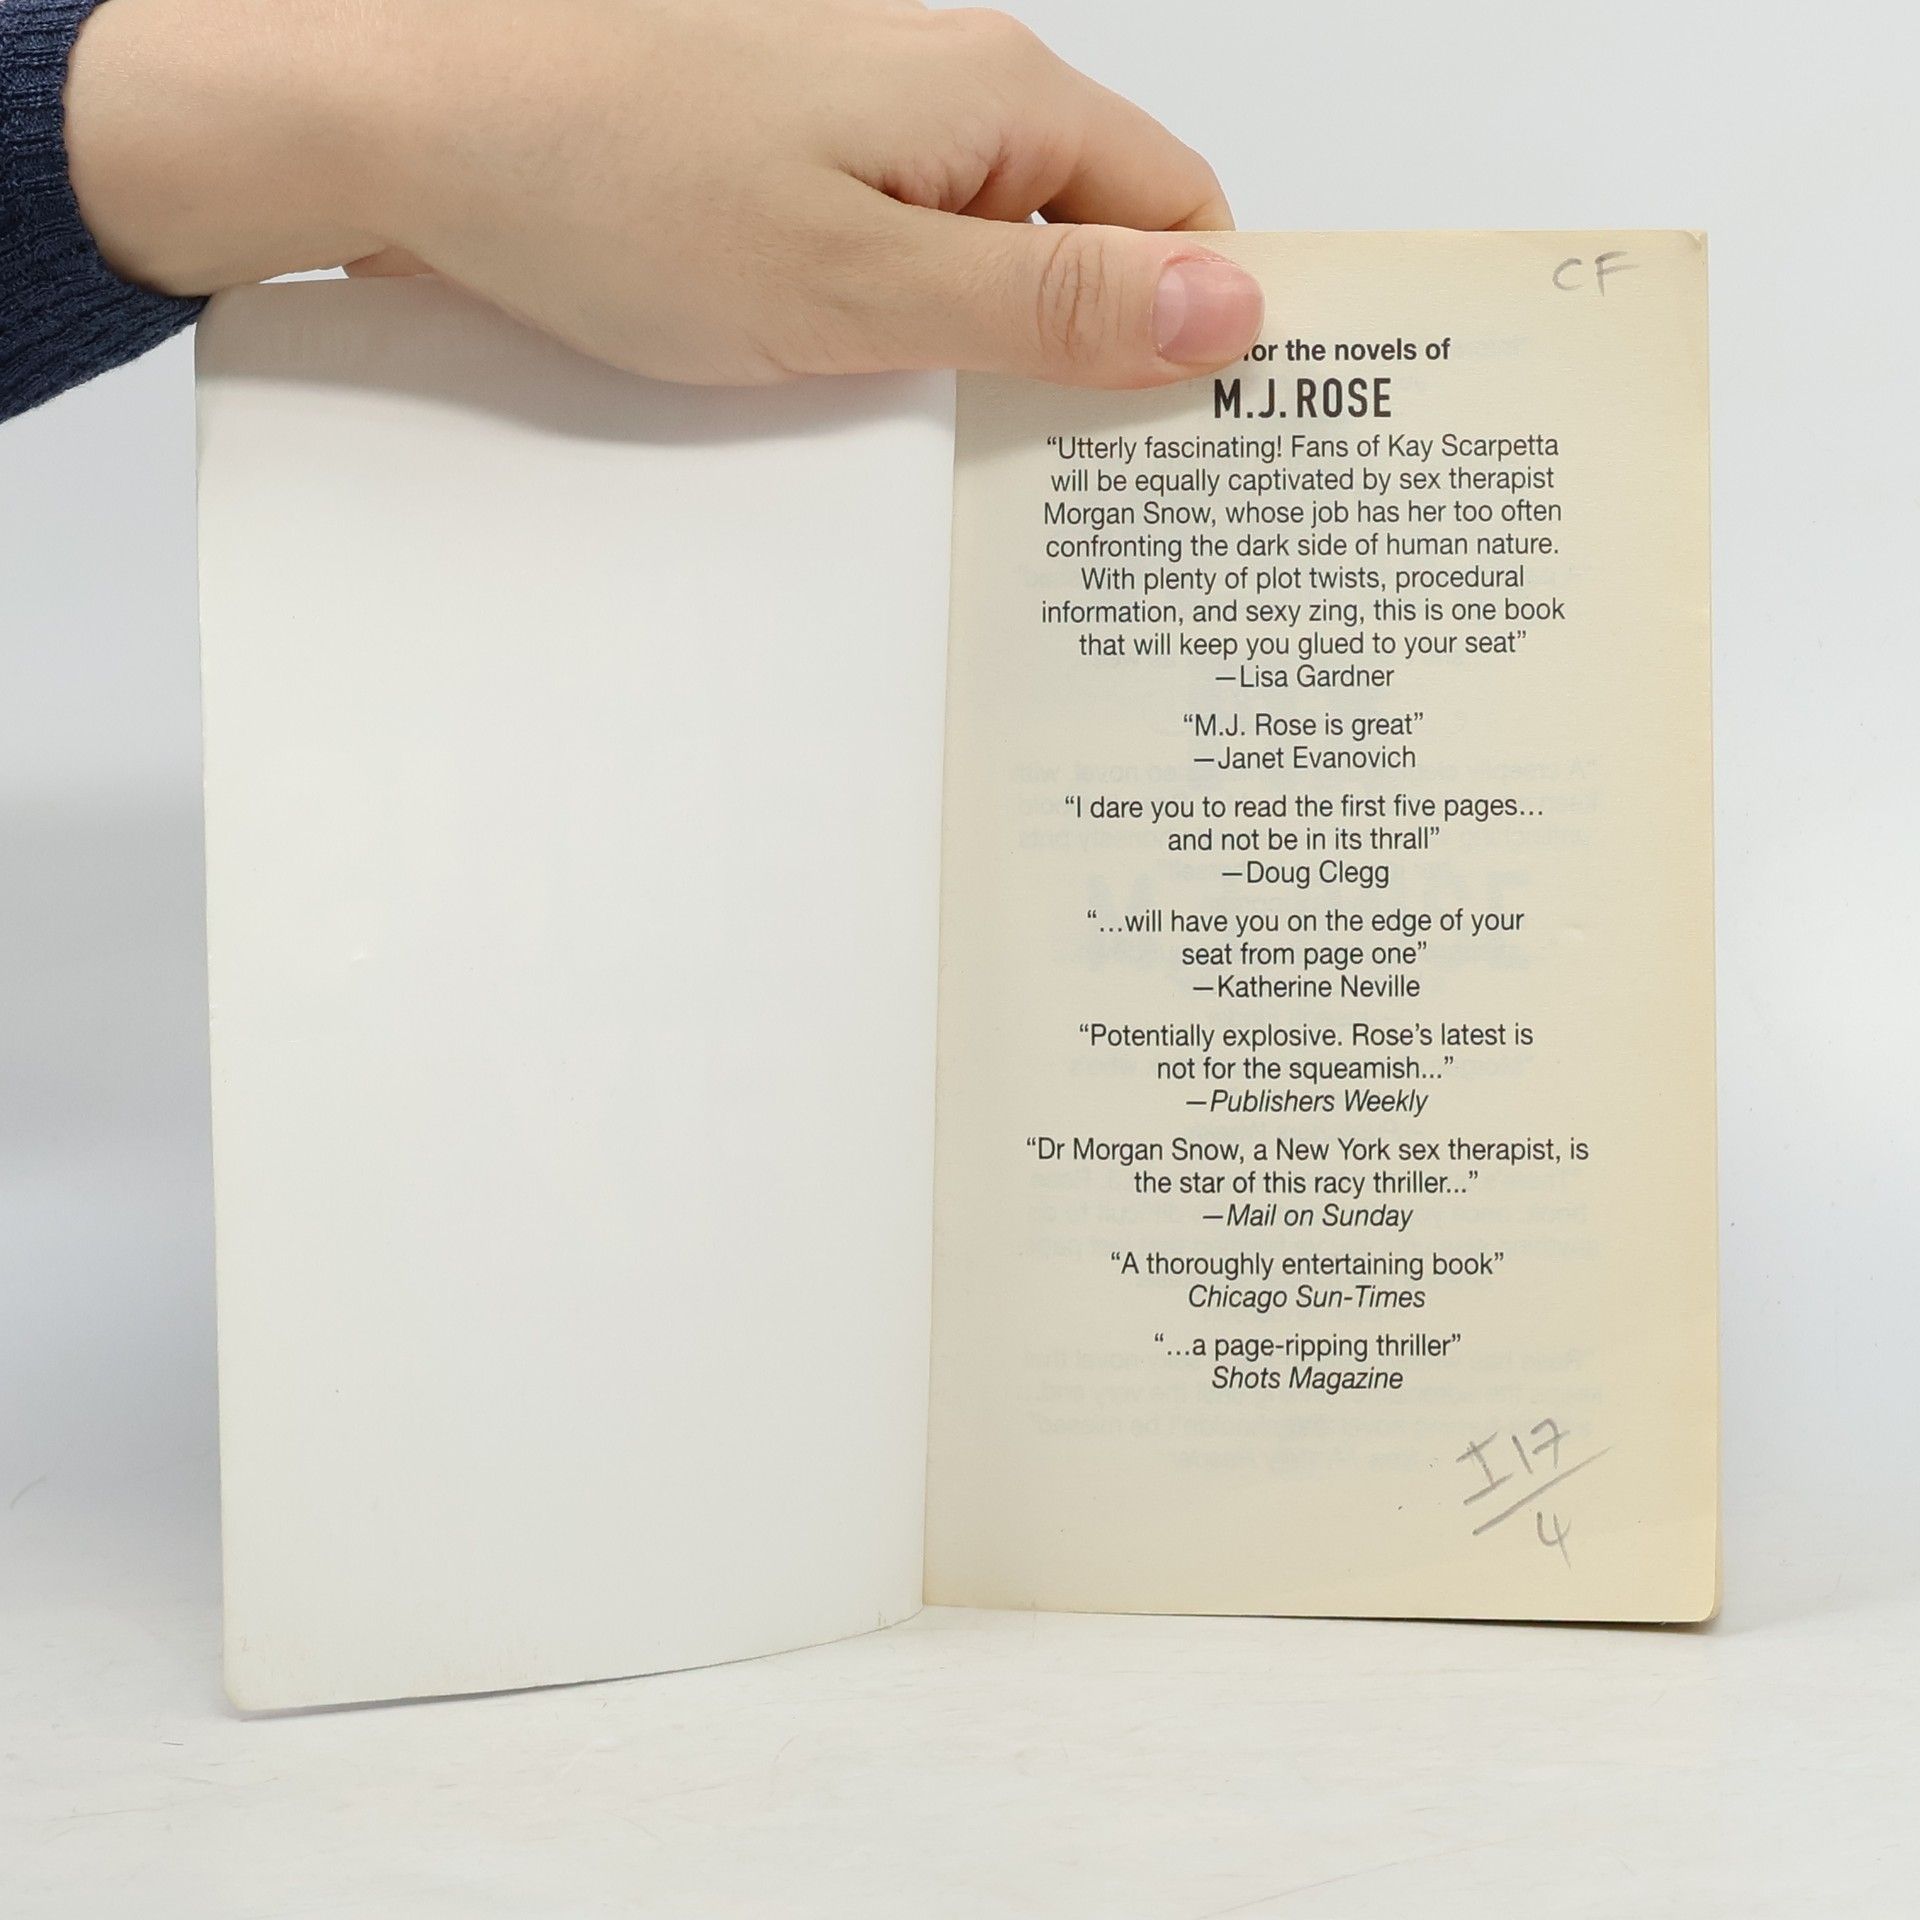 CF
for the novels of
M.J. ROSE
“Utterly fascinating! Fans of Kay Scarpetta
will be equally captivated by sex therapist
Morgan Snow, whose job has her too often
confronting the dark side of human nature.
With plenty of plot twists, procedural
information, and sexy zing, this is one book
that will keep you glued to your seat”
—Lisa Gardner
“M.J. Rose is great”
—Janet Evanovich
“I dare you to read the first five pages...
and not be in its thrall”
—Doug Clegg
“...will have you on the edge of your
seat from page one”
—Katherine Neville
“Potentially explosive. Rose’s latest is
not for the squeamish...”
—Publishers Weekly
“Dr Morgan Snow, a New York sex therapist, is
the star of this racy thriller...”
—Mail on Sunday
“A thoroughly entertaining book”
Chicago Sun-Times
“...a page-ripping thriller”
Shots Magazine
I17
4